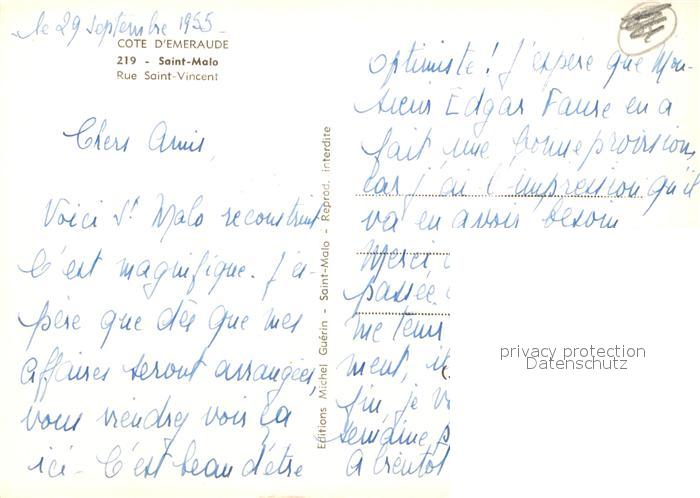 le 29 septembre 1955
COTE D'EMERAUDE
219 - Saint-Malo
Rue Saint-Vincent
Chers Amis,
Voici St Malo reconstruit
C'est magnifique. J'es-
père que dès que mes
affaires seront arrangées,
vous viendrez voir ça
ici - C'est beau d'être
Editions Michel Guérin - Saint-Malo - Reprod. interdite
Optimiste! J'espère que Mon-
sieur Edgar Faure en a
fait une bonne provision,
car j'ai l'impression qu'il
va en avoir besoin
Merci
passée
me tenir
ment,
fin, je
semaine
A bientôt
privacy protection
Datenschutz